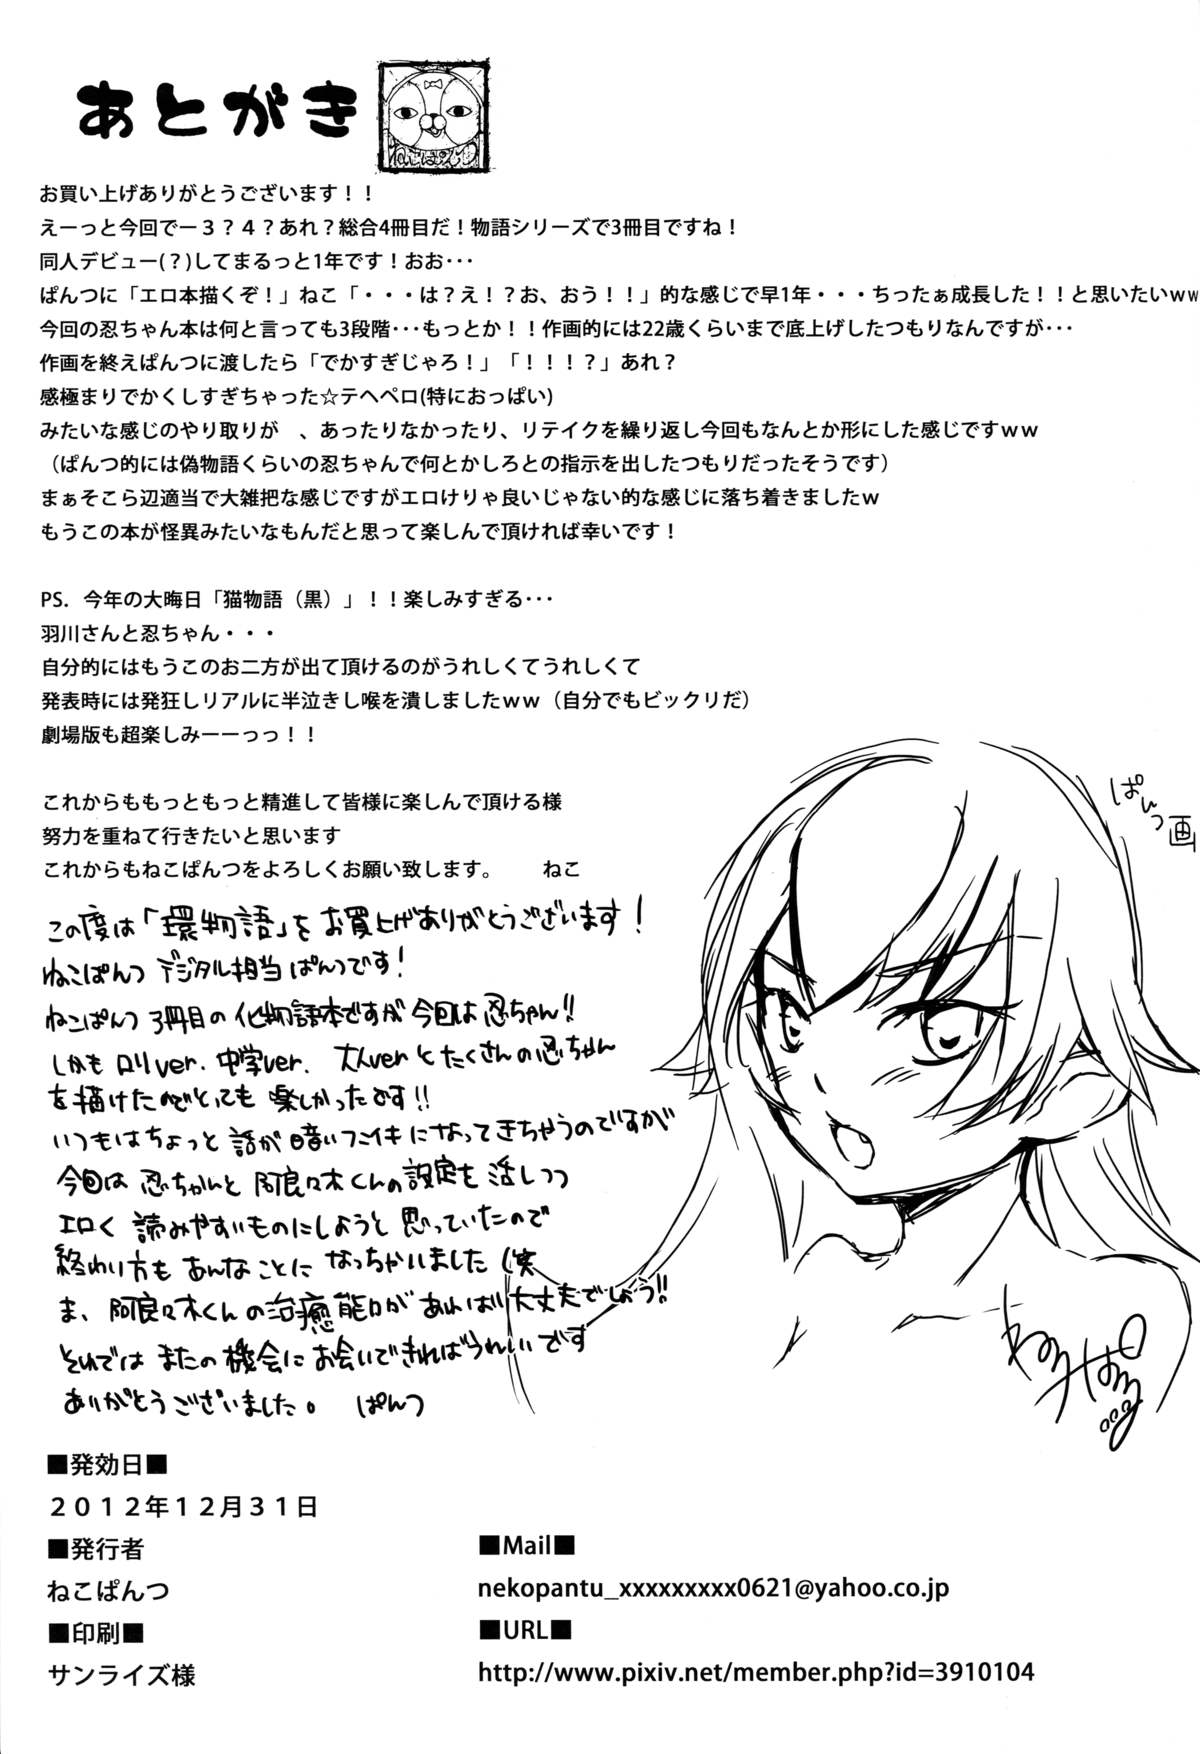 あとがき
ねこぱんつ
お買い上げありがとうございます！！
えーっと今回でー３？４？あれ？総合4冊目だ！物語シリーズで3冊目ですね！
同人デビュー(？)してまるっと1年です！おお･･･
ぱんつに「エロ本描くぞ！」ねこ「・・・は？え！？お、おう！！」的な感じで早1年・・・ちったぁ成長した！！と思いたいｗｗ
今回の忍ちゃん本は何と言っても3段階･･･もっとか！！作画的には22歳くらいまで底上げしたつもりなんですが･･･
作画を終えぱんつに渡したら「でかすぎじゃろ！」「！！！？」あれ？
感極まりでかくしすぎちゃった☆テヘペロ(特におっぱい)
みたいな感じのやり取りが　、あったりなかったり、リテイクを繰り返し今回もなんとか形にした感じですｗｗ
（ぱんつ的には偽物語くらいの忍ちゃんで何とかしろとの指示を出したつもりだったそうです）
まぁそこら辺適当で大雑把な感じですがエロけりゃ良いじゃない的な感じに落ち着きましたｗ
もうこの本が怪異みたいなもんだと思って楽しんで頂ければ幸いです！
PS．今年の大晦日「猫物語（黒）」！！楽しみすぎる･･･
羽川さんと忍ちゃん・・・
自分的にはもうこのお二方が出て頂けるのがうれしくてうれしくて
発表時には発狂しリアルに半泣きし喉を潰しましたｗｗ（自分でもビックリだ）
劇場版も超楽しみーーっっ！！
これからももっともっと精進して皆様に楽しんで頂ける様
努力を重ねて行きたいと思います
これからもねこぱんつをよろしくお願い致します。　　ねこ
ぱんつ画
この度は「環物語」をお買上げありがとうございます！
ねこぱんつ デジタル担当 ぱんつです！
ねこぱんつ 3冊目の化物語本ですが今回は忍ちゃん!!
しかもロリver. 中学ver. 大人verとたくさんの忍ちゃん
を描けたのでとても楽しかったです!!
いつもはちょっと話が暗いフンイキになってきちゃうのですが
今回は忍ちゃんと阿良々木くんの設定を活しつつ
エロく読みやすいものにしようと思っていたので
終わり方もあんなことになっちゃいました(笑
ま、阿良々木くんの治癒能力があれば大丈夫でしょう!!
それではまたの機会にお会いできればうれしいです
ありがとうございました。　ぱんつ
ねこぱんつ
■発効日■
２０１２年１２月３１日
■発行者
ねこぱんつ
■印刷■
サンライズ様
■Mail■
nekopantu_xxxxxxxxx0621@yahoo.co.jp
■URL■
http://www.pixiv.net/member.php?id=3910104